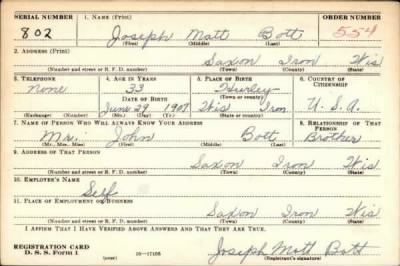 SERIAL NUMBER 1. NAME (Print) ORDER NUMBER
802 Joseph Matt Bott 554
(First) (Middle) (Last)
2. ADDRESS (Print)
Saxon Iron Wis
(Number and street or R. F. D. number) (Town) (County) (State)
3. TELEPHONE 4. AGE IN YEARS 5. PLACE OF BIRTH 6. COUNTRY OF CITIZENSHIP
None 33 Hurley
DATE OF BIRTH (Town or county)
June 29 1907 Wis Iron U.S.A.
(Exchange) (Number) (Mo.) (Day) (Yr.) (State or country)
7. NAME OF PERSON WHO WILL ALWAYS KNOW YOUR ADDRESS 8. RELATIONSHIP OF THAT PERSON
Mr. John Bott Brother
(Mr., Mrs., Miss) (First) (Middle) (Last)
9. ADDRESS OF THAT PERSON
Saxon Iron Wis
(Number and street or R. F. D. number) (Town) (County) (State)
10. EMPLOYER'S NAME
Self
11. PLACE OF EMPLOYMENT OR BUSINESS
Saxon Iron Wis
(Number and street or R. F. D. number) (Town) (County) (State)
I AFFIRM THAT I HAVE VERIFIED ABOVE ANSWERS AND THAT THEY ARE TRUE.
REGISTRATION CARD Joseph Matt Bott
D. S. S. Form 1 (over) 16-17105 (Registrant's signature)